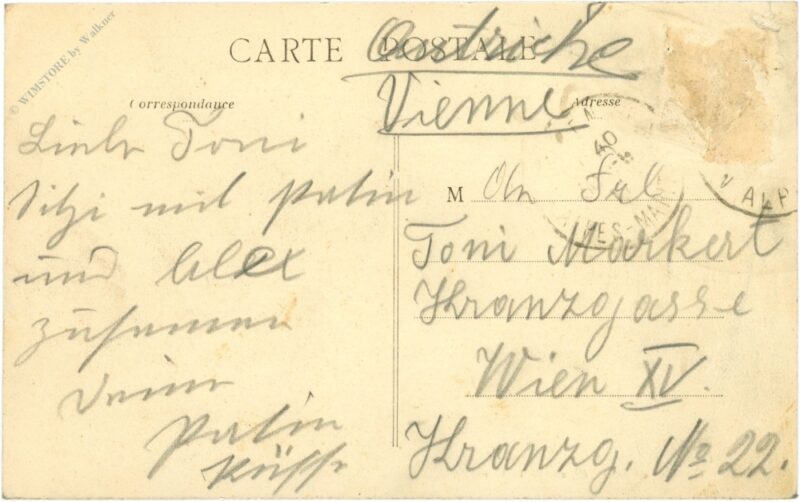 © WIMSTORE by Walkner
CARTE POSTALE
Oestriche
Vienne
Correspondance
Adresse
Liebe Toni
Sitzi mit Patin
und Alex
zusammen
Deine
Patin
Küsse
M An Frl
Toni Markert
Kranzgasse
Wien XV.
Kranzg. No 22.
40
ALPES-MAR
ALP